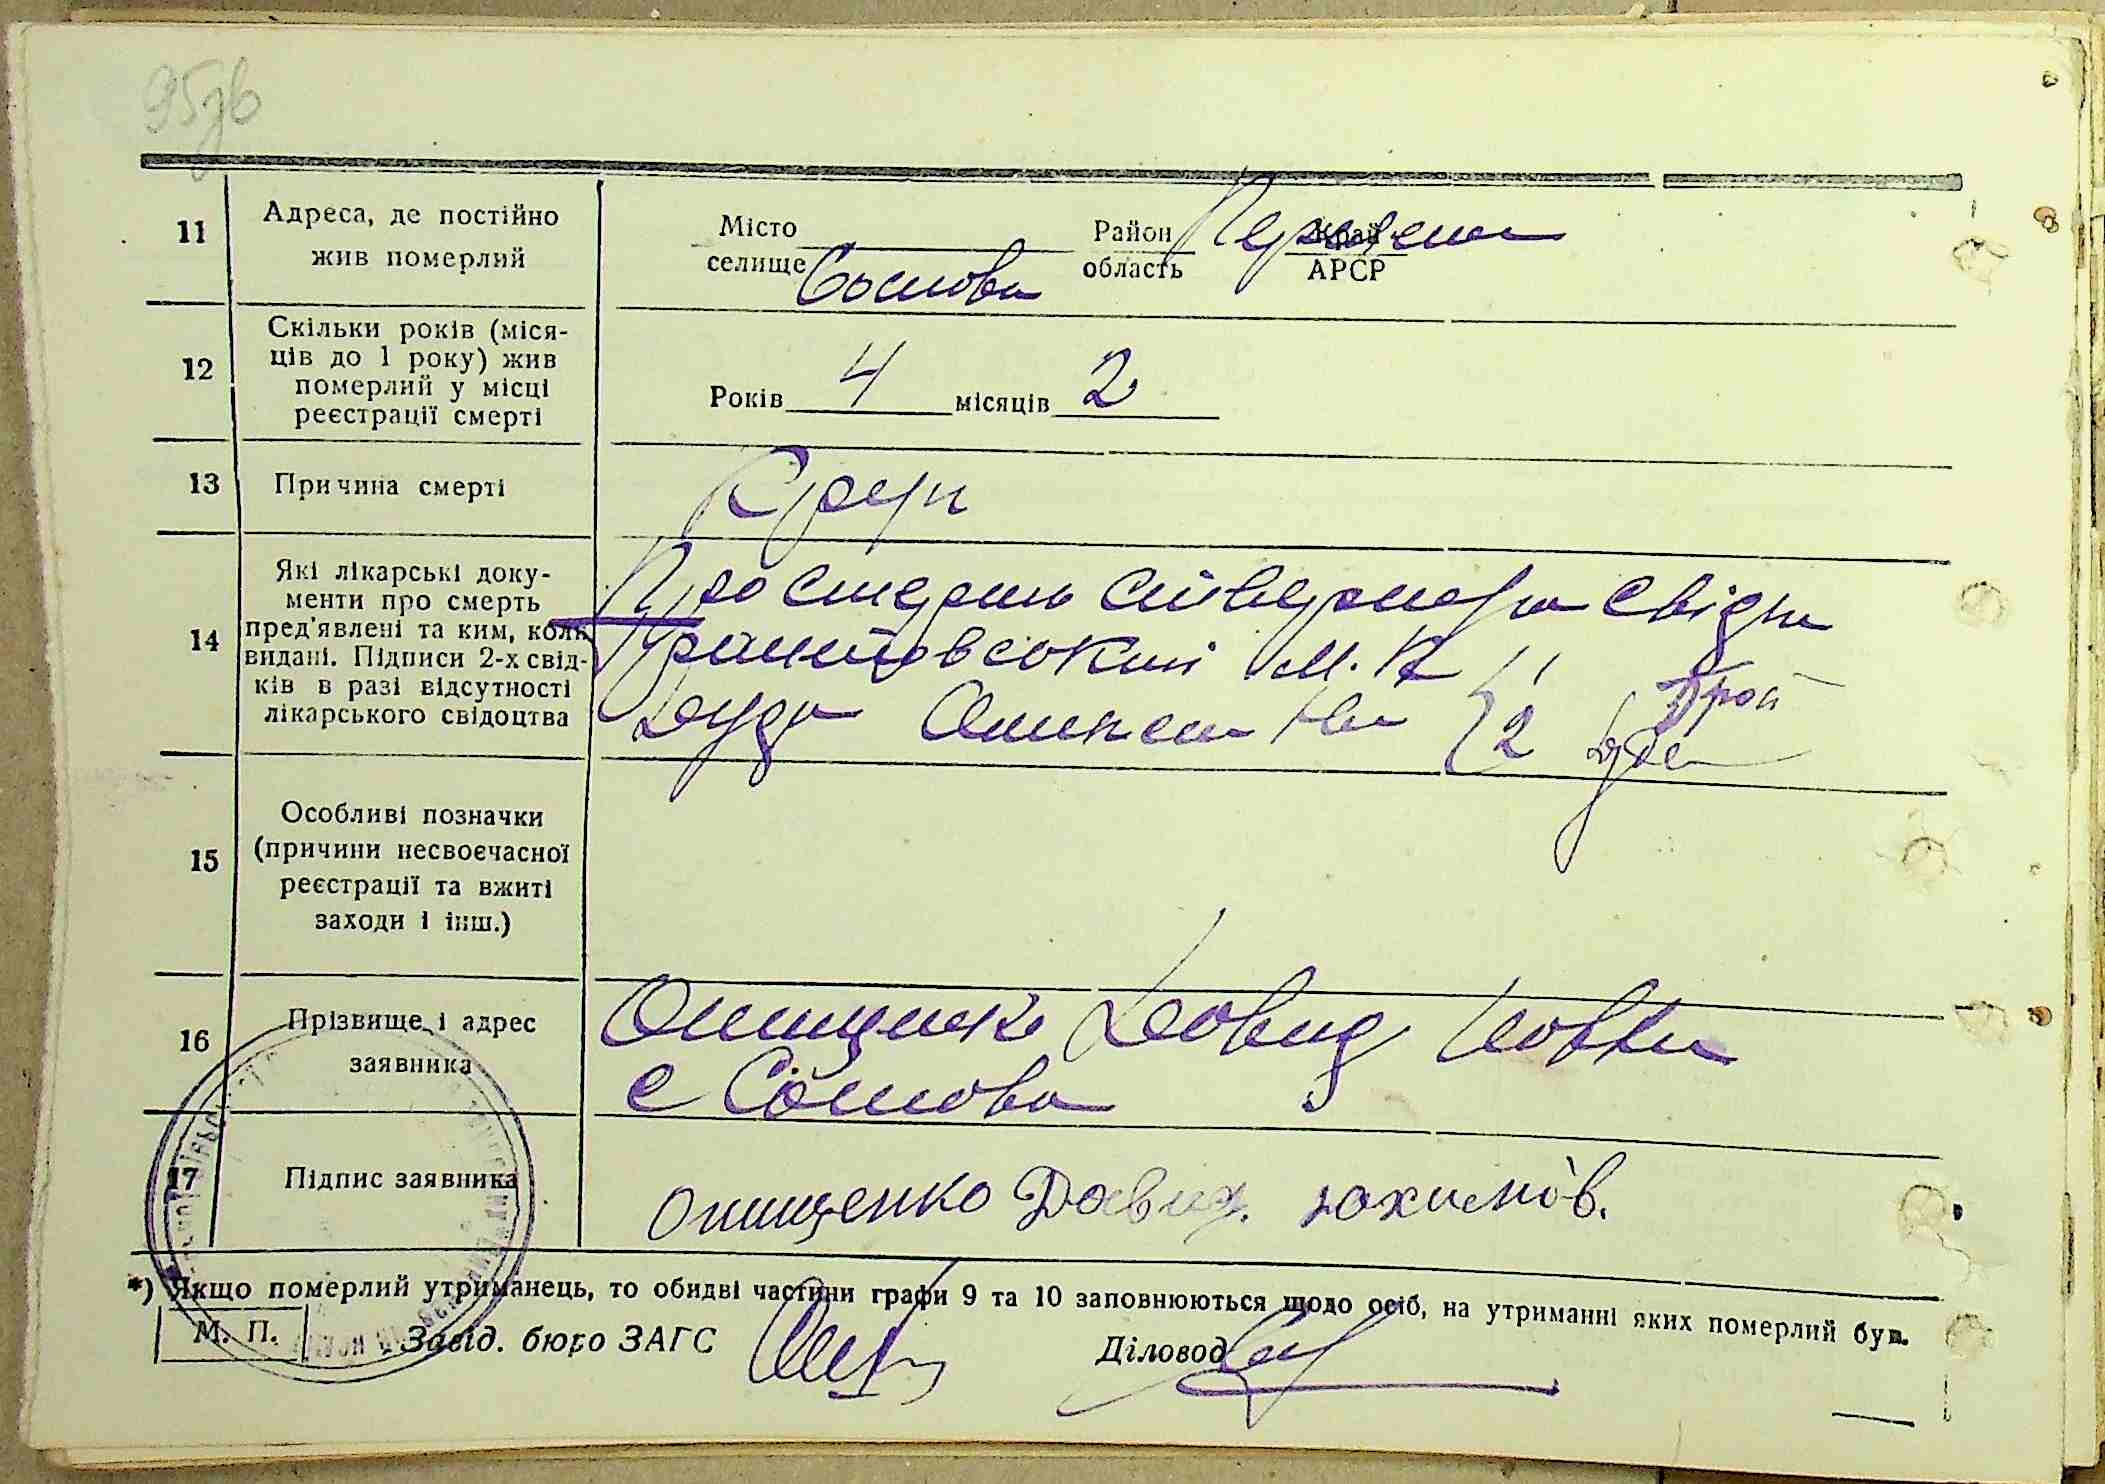 95зв
11
Адреса, де постійно
жив померлий
Місто
селище Соснова
Район
область
Край
АРСР
12
Скільки років (міся-
ців до 1 року) жив
померлий у місці
реєстрації смерті
Років 4 місяців 2
13
Причина смерті
Круп
14
Які лікарські доку-
менти про смерть
пред'явлені та ким, коли
видані. Підписи 2-х свід-
ків в разі відсутності
лікарського свідоцтва
Про смерть свідки
М. К. 1
Дуда 2
15
Особливі позначки
(причини несвоєчасної
реєстрації та вжиті
заходи і інш.)
16
Прізвище і адрес
заявника
Онищенко Давид
с Соснова
17
Підпис заявника
Онищенко Давид. юхимов.
*) Якщо померлий утриманець, то обидві частини графи 9 та 10 заповнюються щодо осіб, на утриманні яких померлий був.
М. П.
Завід. бюро ЗАГС
Діловод